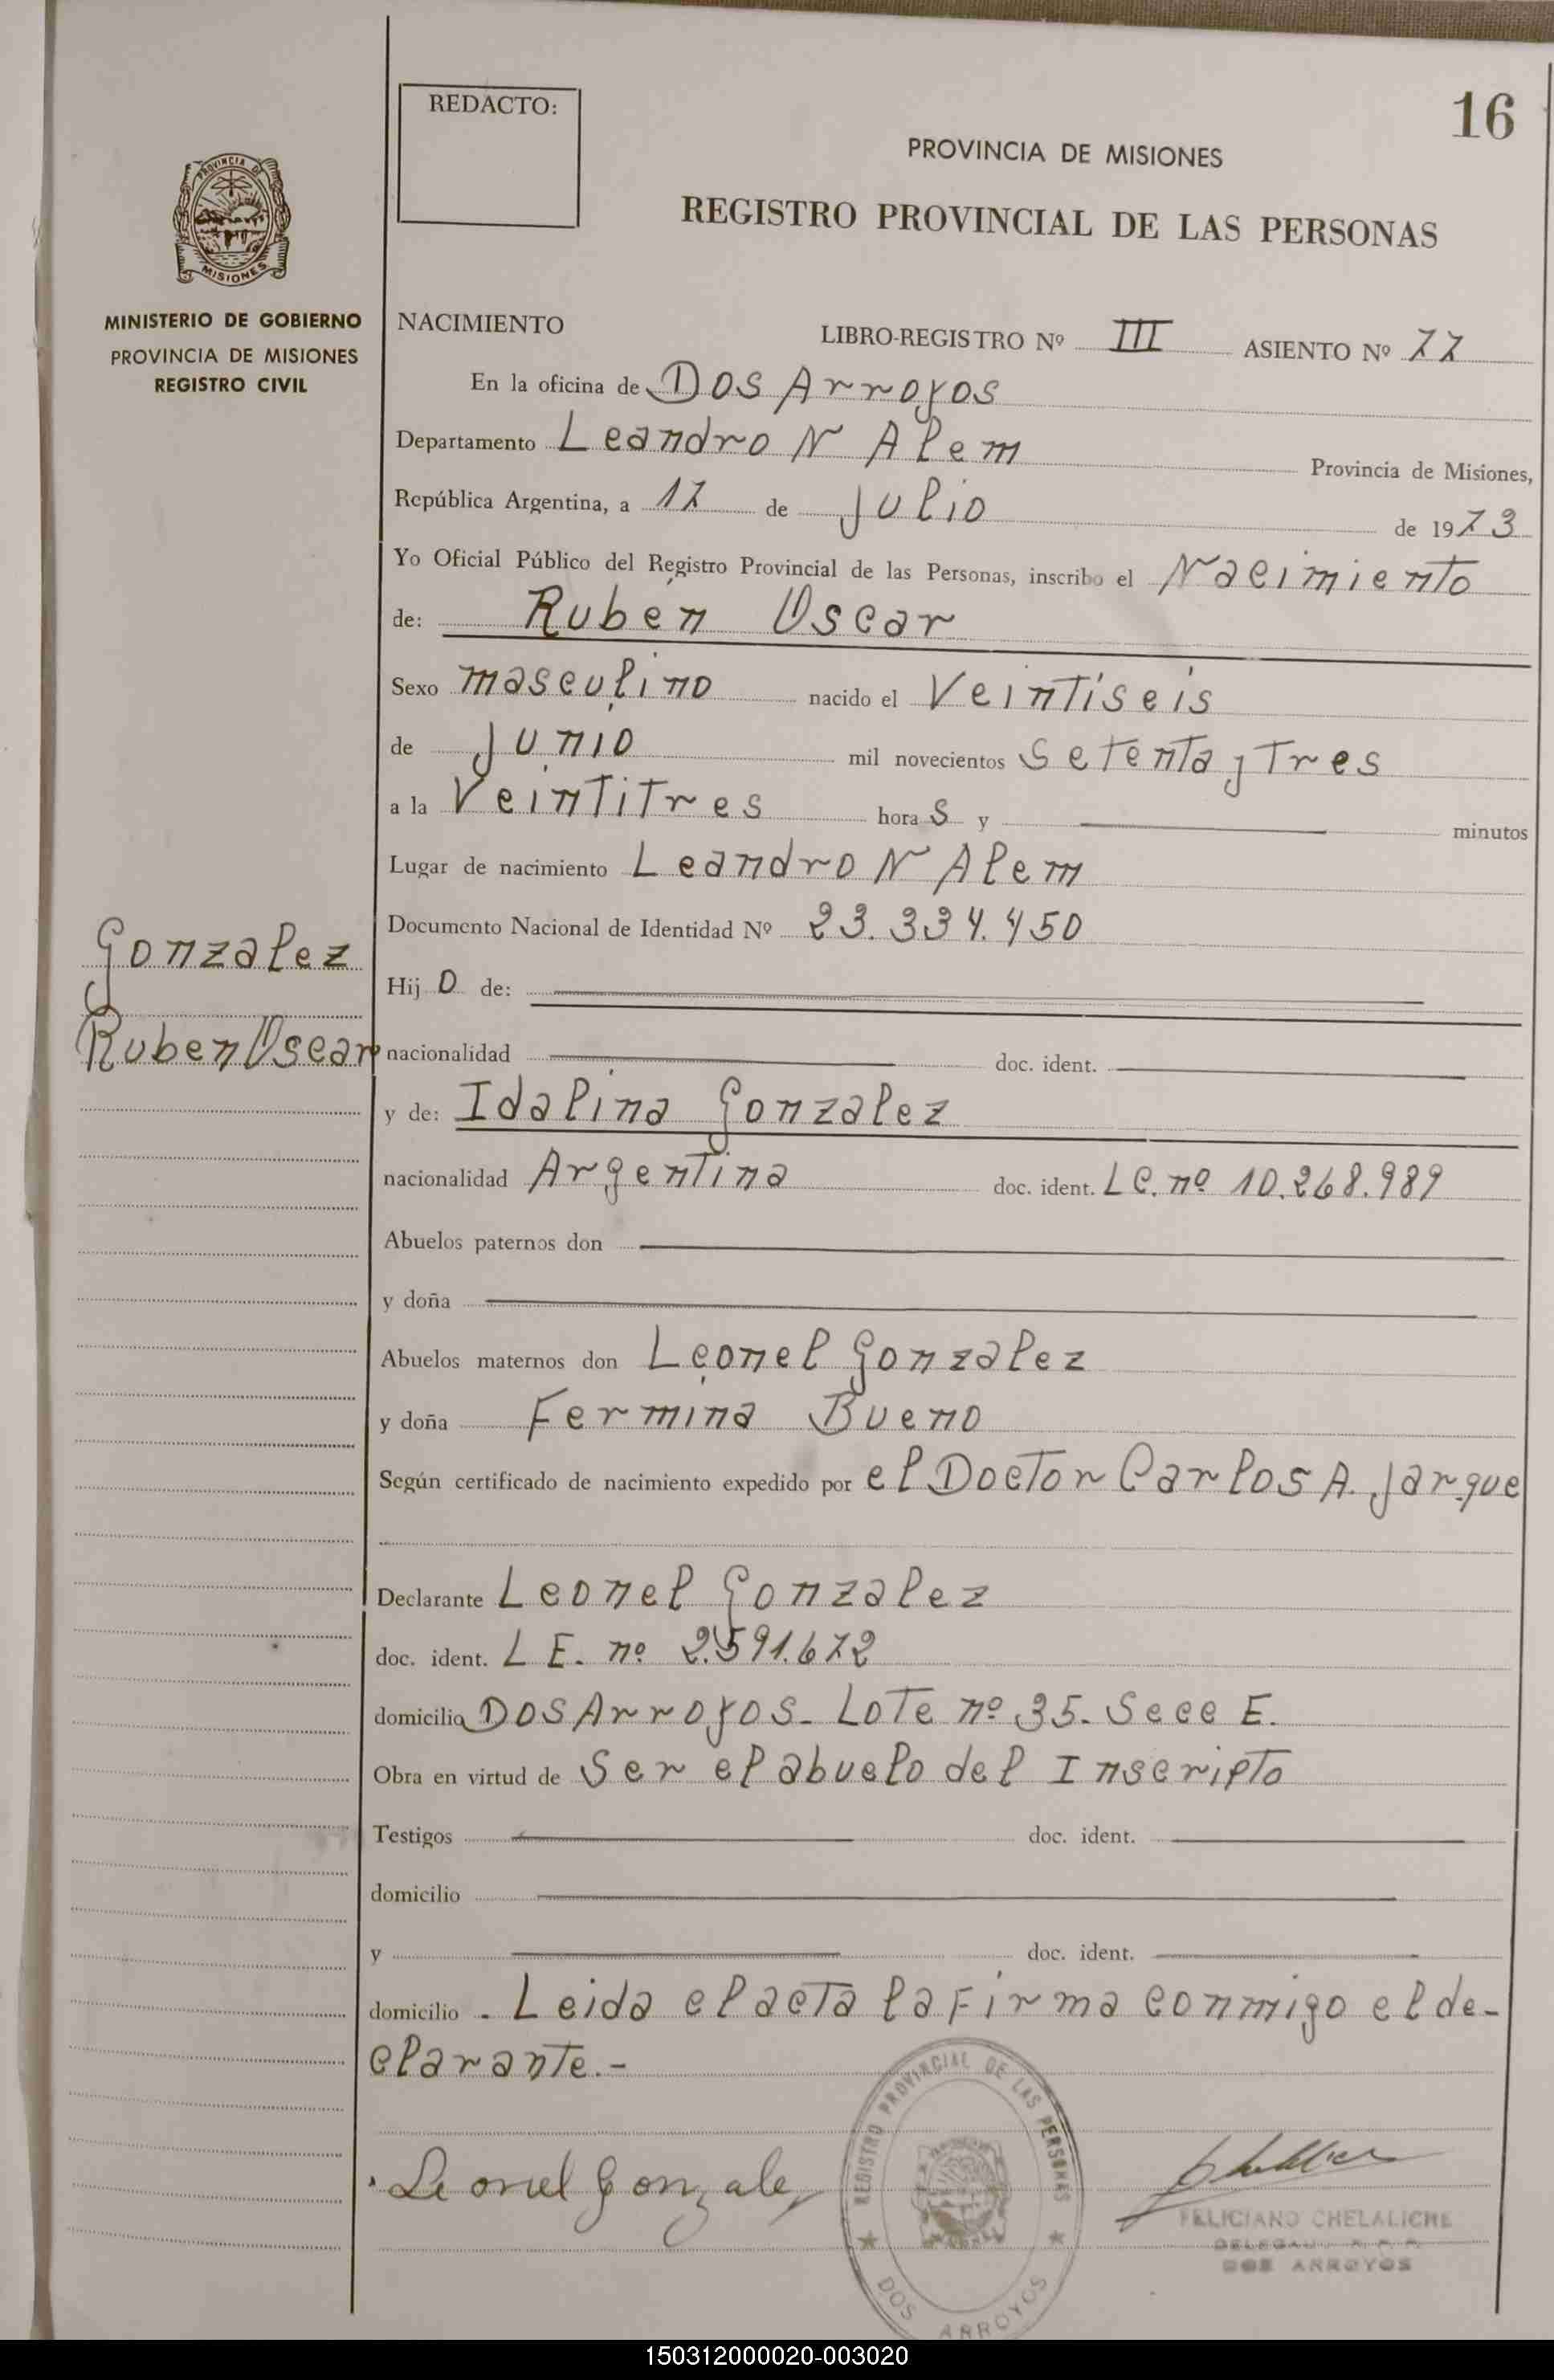 16
REDACTO:
PROVINCIA DE MISIONES
REGISTRO PROVINCIAL DE LAS PERSONAS
PROVINCIA DE
MISIONES
MINISTERIO DE GOBIERNO
PROVINCIA DE MISIONES
REGISTRO CIVIL
NACIMIENTO LIBRO-REGISTRO Nº III ASIENTO Nº 77
En la oficina de Dos Arroyos
Departamento Leandro N Alem Provincia de Misiones,
República Argentina, a 17 de Julio de 1973
Yo Oficial Público del Registro Provincial de las Personas, inscribo el Nacimiento
de: Ruben Oscar
Sexo masculino nacido el Veintiseis
de Junio mil novecientos Setenta y Tres
a la Veintitres hora s y minutos
Lugar de nacimiento Leandro N Alem
Documento Nacional de Identidad Nº 23.334.450
Gonzalez
Hij o de:
Ruben Oscar
nacionalidad doc. ident.
y de: Idalina Gonzalez
nacionalidad Argentina doc. ident. LC. nº 10.268.989
Abuelos paternos don
y doña
Abuelos maternos don Leonel Gonzalez
y doña Fermina Bueno
Según certificado de nacimiento expedido por el Doctor Carlos A. Jarque
Declarante Leonel Gonzalez
doc. ident. L E. nº 2.591.672
domicilio Dos Arroyos - Lote nº 35 - Secc E.
Obra en virtud de Ser el abuelo del Inscripto
Testigos doc. ident.
domicilio
y doc. ident.
domicilio - Leida el acta la Firma conmigo el de-
clarante.-
REGISTRO PROVINCIAL DE LAS PERSONAS
DOS ARROYOS
Leonel Gonzalez
FELICIANO CHELALICHE
DOS ARROYOS
150312000020-003020